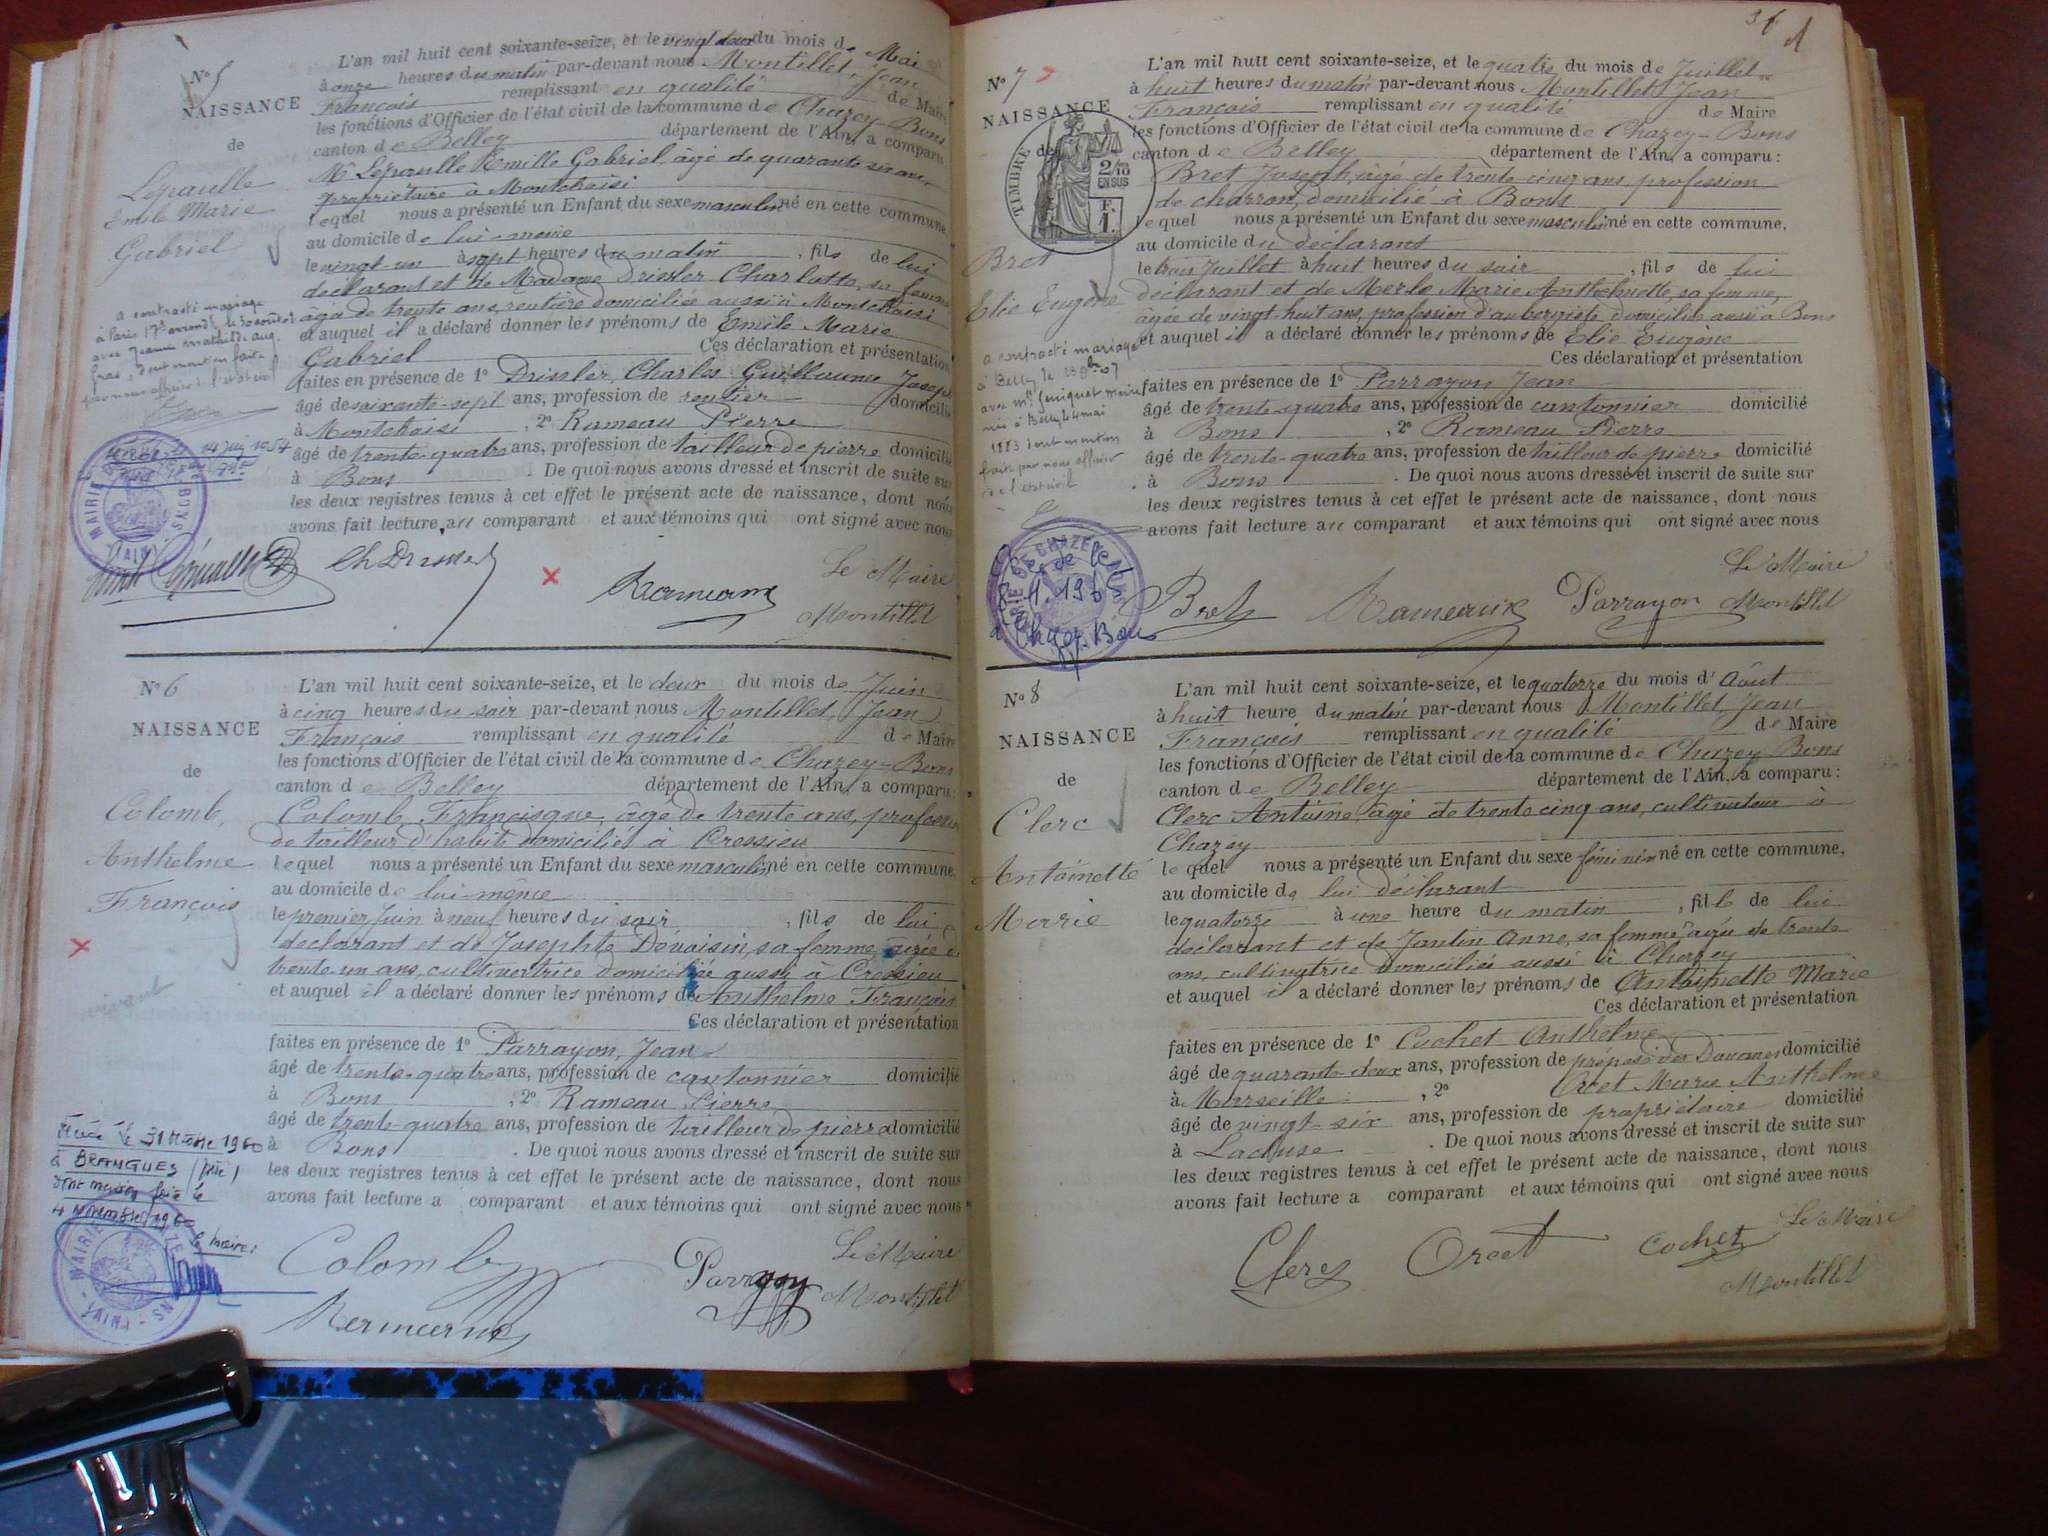 N° 5
NAISSANCE
de
Lépaulle
Emile Marie
Gabriel
a contracté mariage
à Paris 17e
avec Jeanne Mathilde
dont mention faite
par nous officier de l'état civil
L'an mil huit cent soixante-seize, et le vingt deux du mois de Mai
à onze heures du matin par-devant nous Montillet, Jean
François remplissant en qualité de Maire
les fonctions d'Officier de l'état civil de la commune de Chazey-Bons
canton de Belley département de l'Ain, a comparu:
Mr Lépaulle Emille Gabriel, âgé de quarante six ans,
propriétaire à Montchoisi
lequel nous a présenté un Enfant du sexe masculin né en cette commune,
au domicile de lui-même
le vingt-un à sept heures du matin, fils de lui
déclarant et de Madame Drisler Charlotte, sa femme
âgée de trente ans, rentière domiciliée aussi à Montchoisi
et auquel il a déclaré donner les prénoms de Emile Marie
Gabriel Ces déclaration et présentation
faites en présence de 1° Drissler, Charles Guillaume Joseph
âgé de soixante-sept ans, profession de rentier domicilié
à Montchoisi, 2° Rameau Pierre
âgé de trente-quatre ans, profession de tailleur de pierre domicilié
à Bons. De quoi nous avons dressé et inscrit de suite sur
les deux registres tenus à cet effet le présent acte de naissance, dont nous
avons fait lecture au comparant et aux témoins qui ont signé avec nous
Le Maire
Montillet
N° 6
NAISSANCE
de
Colomb,
Anthelme
François
vivant
31 octobre 1960
à BRANGUES
dont mention faite le
4 novembre 1960
le maire:
L'an mil huit cent soixante-seize, et le deux du mois de Juin
à cinq heures du soir par-devant nous Montillet, Jean
François remplissant en qualité de Maire
les fonctions d'Officier de l'état civil de la commune de Chazey-Bons
canton de Belley département de l'Ain, a comparu:
Colomb Francisque, âgé de trente ans, profession
de tailleur d'habits domicilié à Cressieu
lequel nous a présenté un Enfant du sexe masculin né en cette commune,
au domicile de lui-même
le premier Juin à neuf heures du soir, fils de lui
déclarant et de Josephte Dévoisin, sa femme, âgée de
trente-un ans, cultivertrice domiciliée aussi à Cressieu
et auquel il a déclaré donner les prénoms de Anthelme François
Ces déclaration et présentation
faites en présence de 1° Parrayon, Jean
âgé de trente-quatre ans, profession de cantonnier domicilié
à Bons, 2° Rameau Pierre
âgé de trente-quatre ans, profession de tailleur de pierre domicilié
à Bons. De quoi nous avons dressé et inscrit de suite sur
les deux registres tenus à cet effet le présent acte de naissance, dont nous
avons fait lecture a comparant et aux témoins qui ont signé avec nous
Colomb Parrayon Le Maire
Montillet
36
N° 7
NAISSANCE
de
TIMBRE
2/10
EN SUS
F.
1.
Bret
Elie Eugène
a contracté mariage
à Belley le
avec
née à Belley 4 mai
1883 dont mention
faite par nous officier
de l'état civil
L'an mil huit cent soixante-seize, et le quatre du mois de Juillet
à huit heures du matin par-devant nous Montillet Jean
François remplissant en qualité de Maire
les fonctions d'Officier de l'état civil de la commune de Chazey-Bons
canton de Belley département de l'Ain, a comparu:
Bret Joseph, âgé de trente-cinq ans, profession
de charron, domicilié à Bons
lequel nous a présenté un Enfant du sexe masculin né en cette commune,
au domicile du déclarant
le trois Juillet à huit heures du soir, fils de lui
déclarant et de Merle Marie Anthelmette, sa femme,
âgée de vingt huit ans, profession d'aubergiste domiciliée aussi à Bons
et auquel il a déclaré donner les prénoms de Elie Eugène
Ces déclaration et présentation
faites en présence de 1° Parrayon Jean
âgé de trente-quatre ans, profession de cantonnier domicilié
à Bons, 2° Rameau Pierre
âgé de trente-quatre ans, profession de tailleur de pierre domicilié
à Bons. De quoi nous avons dressé et inscrit de suite sur
les deux registres tenus à cet effet le présent acte de naissance, dont nous
avons fait lecture au comparant et aux témoins qui ont signé avec nous
Le Maire
Bret Rameau Parrayon Montillet
N° 8
NAISSANCE
de
Clerc
Antoinette
Marie
L'an mil huit cent soixante-seize, et le quatorze du mois d'Août
à huit heure du matin par-devant nous Montillet, Jean
François remplissant en qualité de Maire
les fonctions d'Officier de l'état civil de la commune de Chazey Bons
canton de Belley département de l'Ain, a comparu:
Clerc Antoine, âgé de trente cinq ans, cultivateur à
Chazey
lequel nous a présenté un Enfant du sexe féminin né en cette commune,
au domicile de lui déclarant
le quatorze à une heure du matin, fille de lui
déclarant et de Jantin Anne, sa femme âgée de trente
ans, cultivatrice domiciliée aussi à Chazey
et auquel il a déclaré donner les prénoms de Antoinette Marie
Ces déclaration et présentation
faites en présence de 1° Cochet Anthelme
âgé de quarante-deux ans, profession de préposé des Douanes domicilié
à Marseille, 2° Orcet Marie Anthelme
âgé de vingt-six ans, profession de propriétaire domicilié
à Lacluse. De quoi nous avons dressé et inscrit de suite sur
les deux registres tenus à cet effet le présent acte de naissance, dont nous
avons fait lecture a comparant et aux témoins qui ont signé avec nous
Le Maire
Clerc Orcet Cochet
Montillet